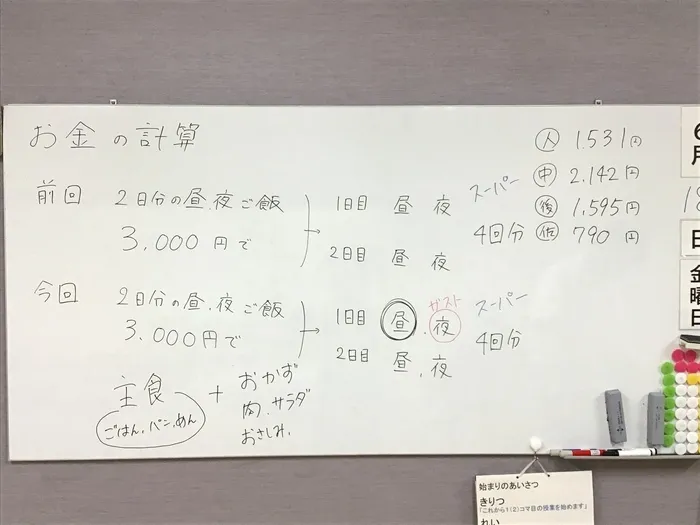 お金の計算
前回
2日分の昼.夜ご飯
3.000円で
1日目 昼 夜
2日目 昼 夜
スーパー
4回分
人 1.531円
中 2.142円
後 1,595円
佐 790円
今回
2日分の昼.夜ご飯
3.000円で
ガスト
1日目 昼.夜
2日目 昼.夜
スーパー
4回分
主食
ごはん.パン.めん
+
おかず
肉.サラダ
おさしみ.
6
月
日
金
曜
日
始まりのあいさつ
きりつ
「これから1(2)コマ目の授業を始めます」
れい